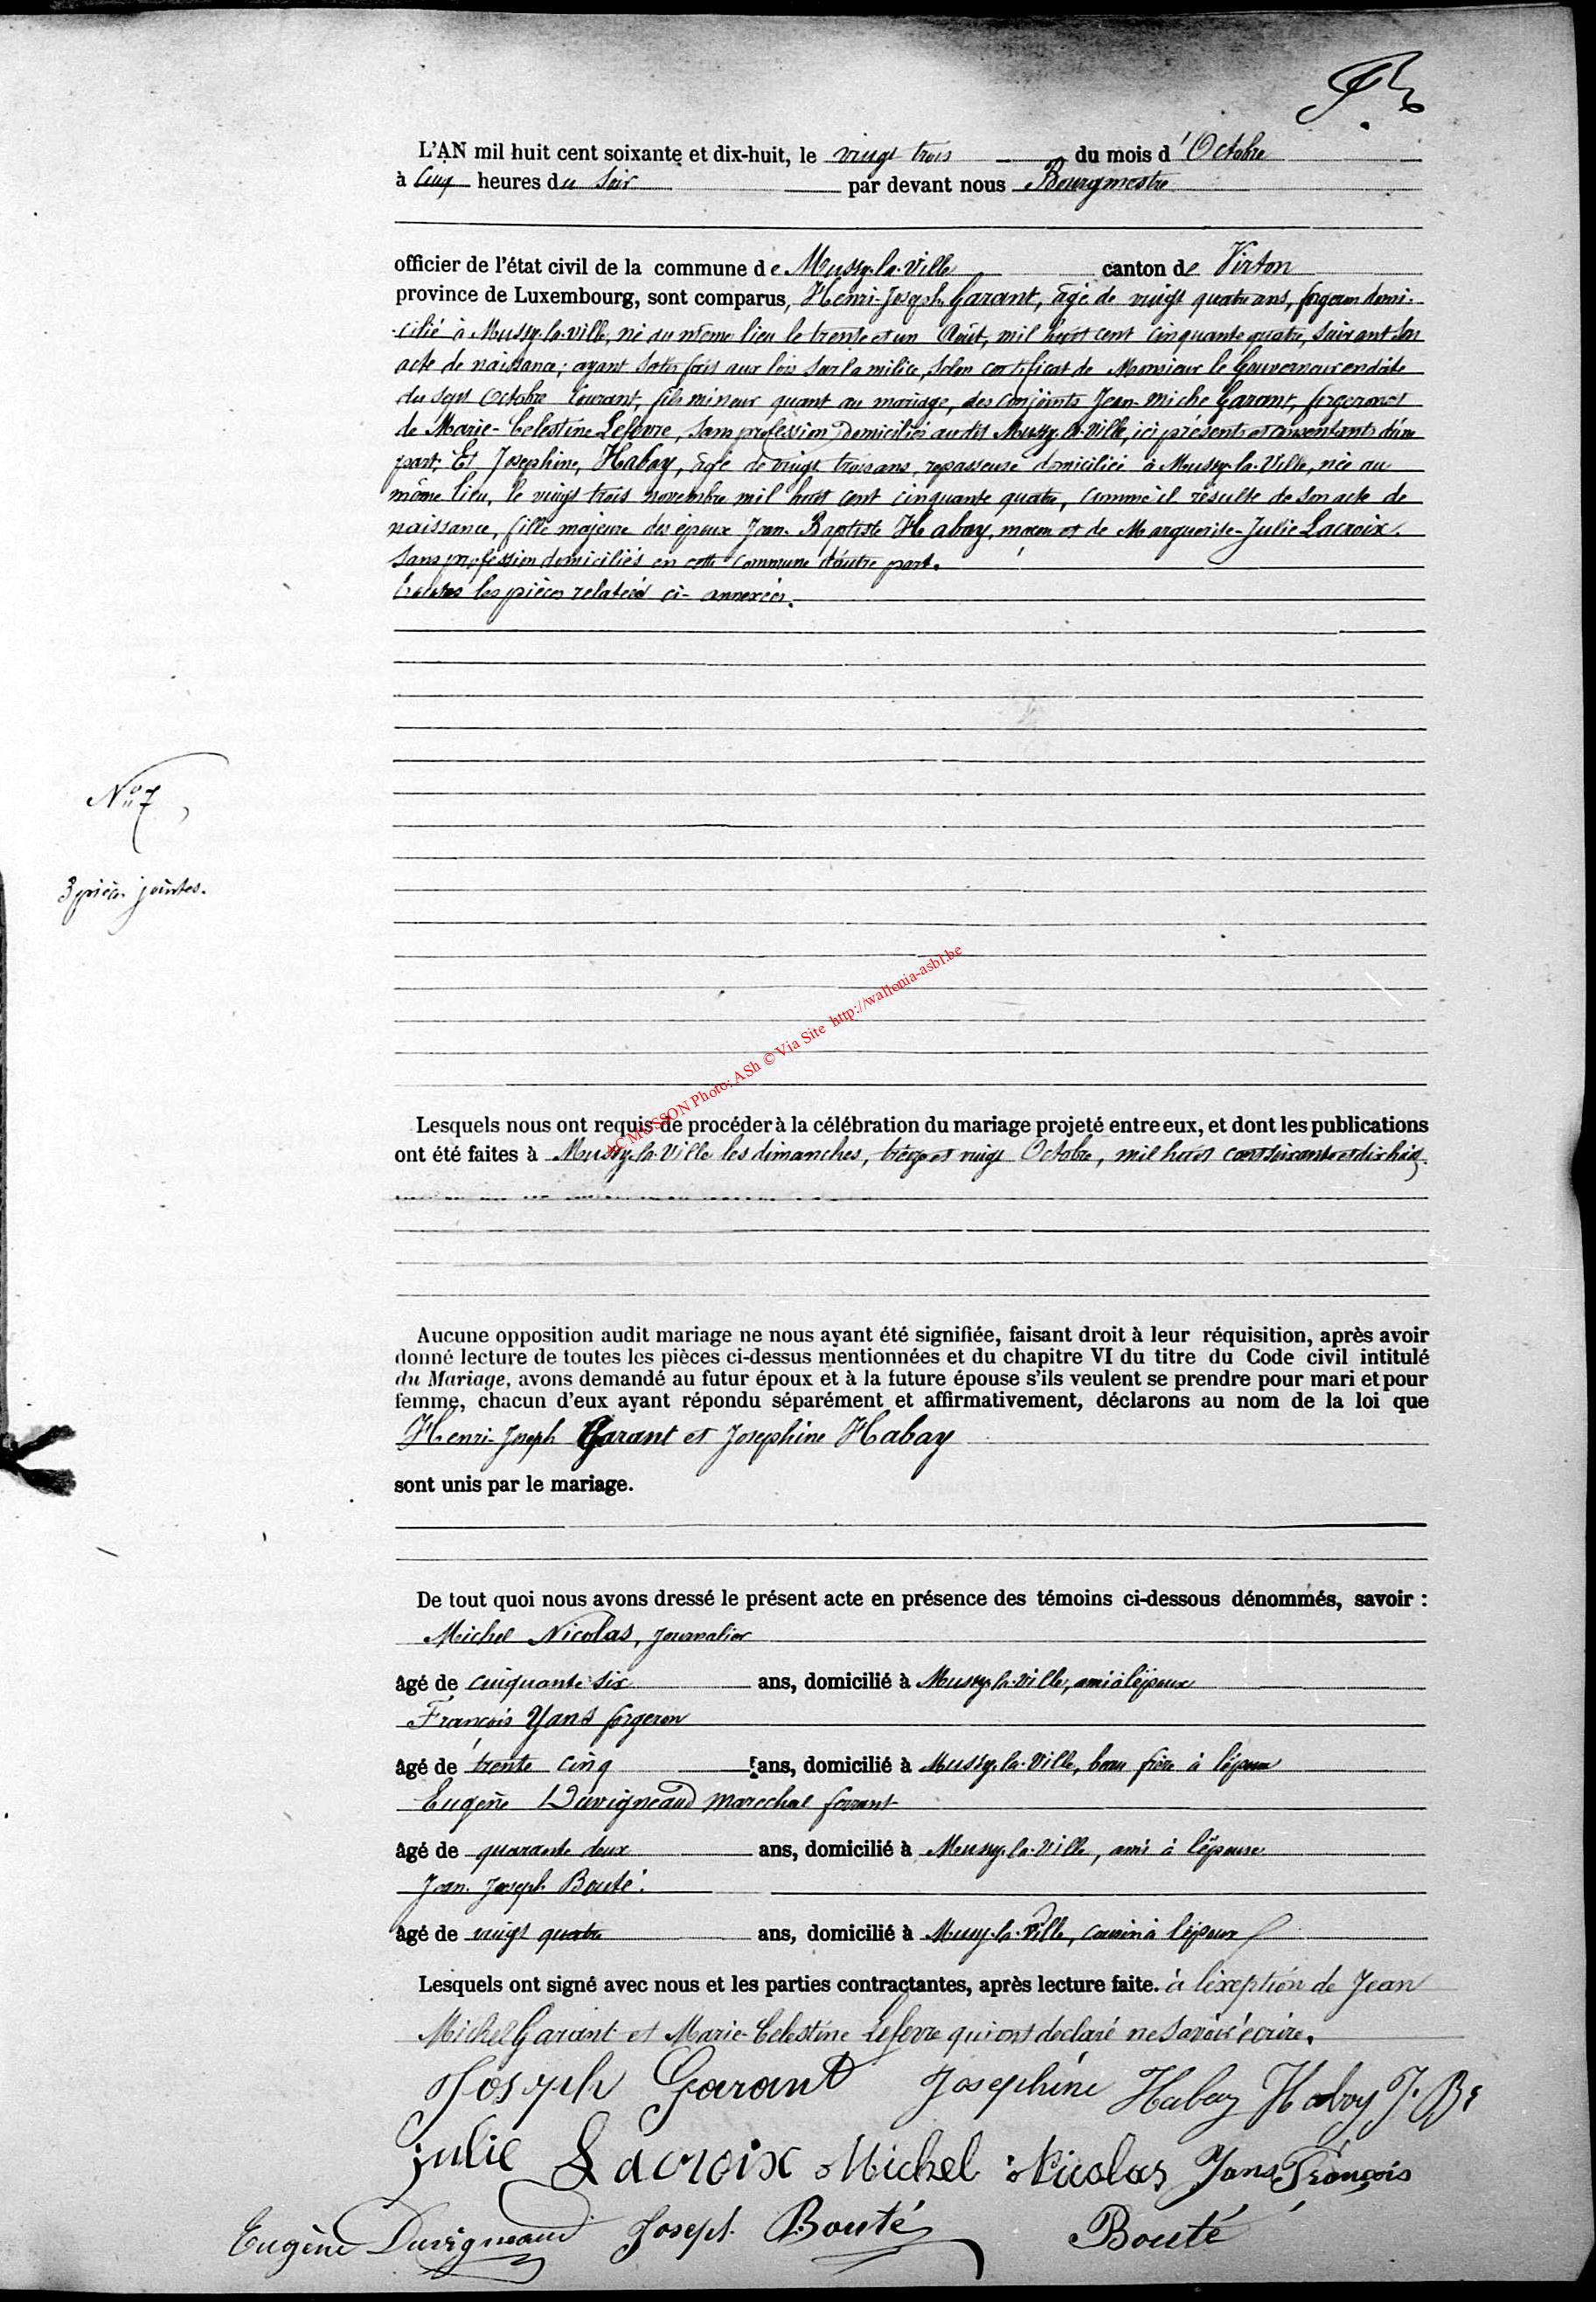 L'AN mil huit cent soixante et dix-huit, le vingt trois du mois d'Octobre
à cinq heures du soir par devant nous Bourgmestre
officier de l'état civil de la commune de Mussy-la-Ville canton de Virton
province de Luxembourg, sont comparus, Henri-Joseph Garant, âgé de vingt quatre ans, forgeron domi-
-cilié à Mussy-la-ville, né au même lieu le trente et un Août, mil huit cent cinquante quatre, suivant son
acte de naissance; ayant satisfait aux lois sur la milice, selon certificat de Monsieur le Gouverneur en date
du sept Octobre courant, fils mineur quant au mariage, des conjoints Jean-Miche Garant, forgeron et
de Marie-Celestine Lefevre, sans profession domiciliés audit Mussy-la-Ville, ici présents et consentants d'une
part; Et Josephine, Habay, âgé de vingt trois ans, repasseuse domiciliée à Mussy-la-Ville, née au
même lieu, le vingt trois novembre mil huit cent cinquante quatre, comme il résulte de son acte de
naissance, fille majeure des époux Jean-Baptiste Habay, et de Marguerite-Julie Lacroix.
sans profession domiciliés en cette commune d'autre part.
les pièces relatées ci-annexées.
No 7
3 pièces jointes.
AC MUSSON Photo: ASh © Via Site http://wallonia-asbl.be
Lesquels nous ont requis de procéder à la célébration du mariage projeté entre eux, et dont les publications
ont été faites à Mussy-la-Ville les dimanches, treize et vingt Octobre, mil huit cent soixante et dix huit.
Aucune opposition audit mariage ne nous ayant été signifiée, faisant droit à leur réquisition, après avoir
donné lecture de toutes les pièces ci-dessus mentionnées et du chapitre VI du titre du Code civil intitulé
du Mariage, avons demandé au futur époux et à la future épouse s'ils veulent se prendre pour mari et pour
femme, chacun d'eux ayant répondu séparément et affirmativement, déclarons au nom de la loi que
Henri-Joseph Garant et Josephine Habay
sont unis par le mariage.
De tout quoi nous avons dressé le présent acte en présence des témoins ci-dessous dénommés, savoir :
Michel Nicolas, journalier
âgé de cinquante six ans, domicilié à Mussy-la-Ville, ami à l'époux
François Yans forgeron
âgé de trente cinq ans, domicilié à Mussy-la-Ville, beau frère à l'époux
Eugène Duvigneaud marechal ferrant
âgé de quarante deux ans, domicilié à Mussy-la-Ville, ami à l'épouse
Jean-Joseph Bouté.
âgé de vingt quatre ans, domicilié à Mussy-la-Ville, cousin à l'époux
Lesquels ont signé avec nous et les parties contractantes, après lecture faite. à l'exeption de Jean
Michel Garant et Marie-Celestine Lefevre qui ont declaré ne savoir écrire.
Joseph Garant Josephine Habay Habay J. Bt
julie Lacroix Michel Nicolas Yans François
Eugène Duvigneaud Joseph Bouté Bouté